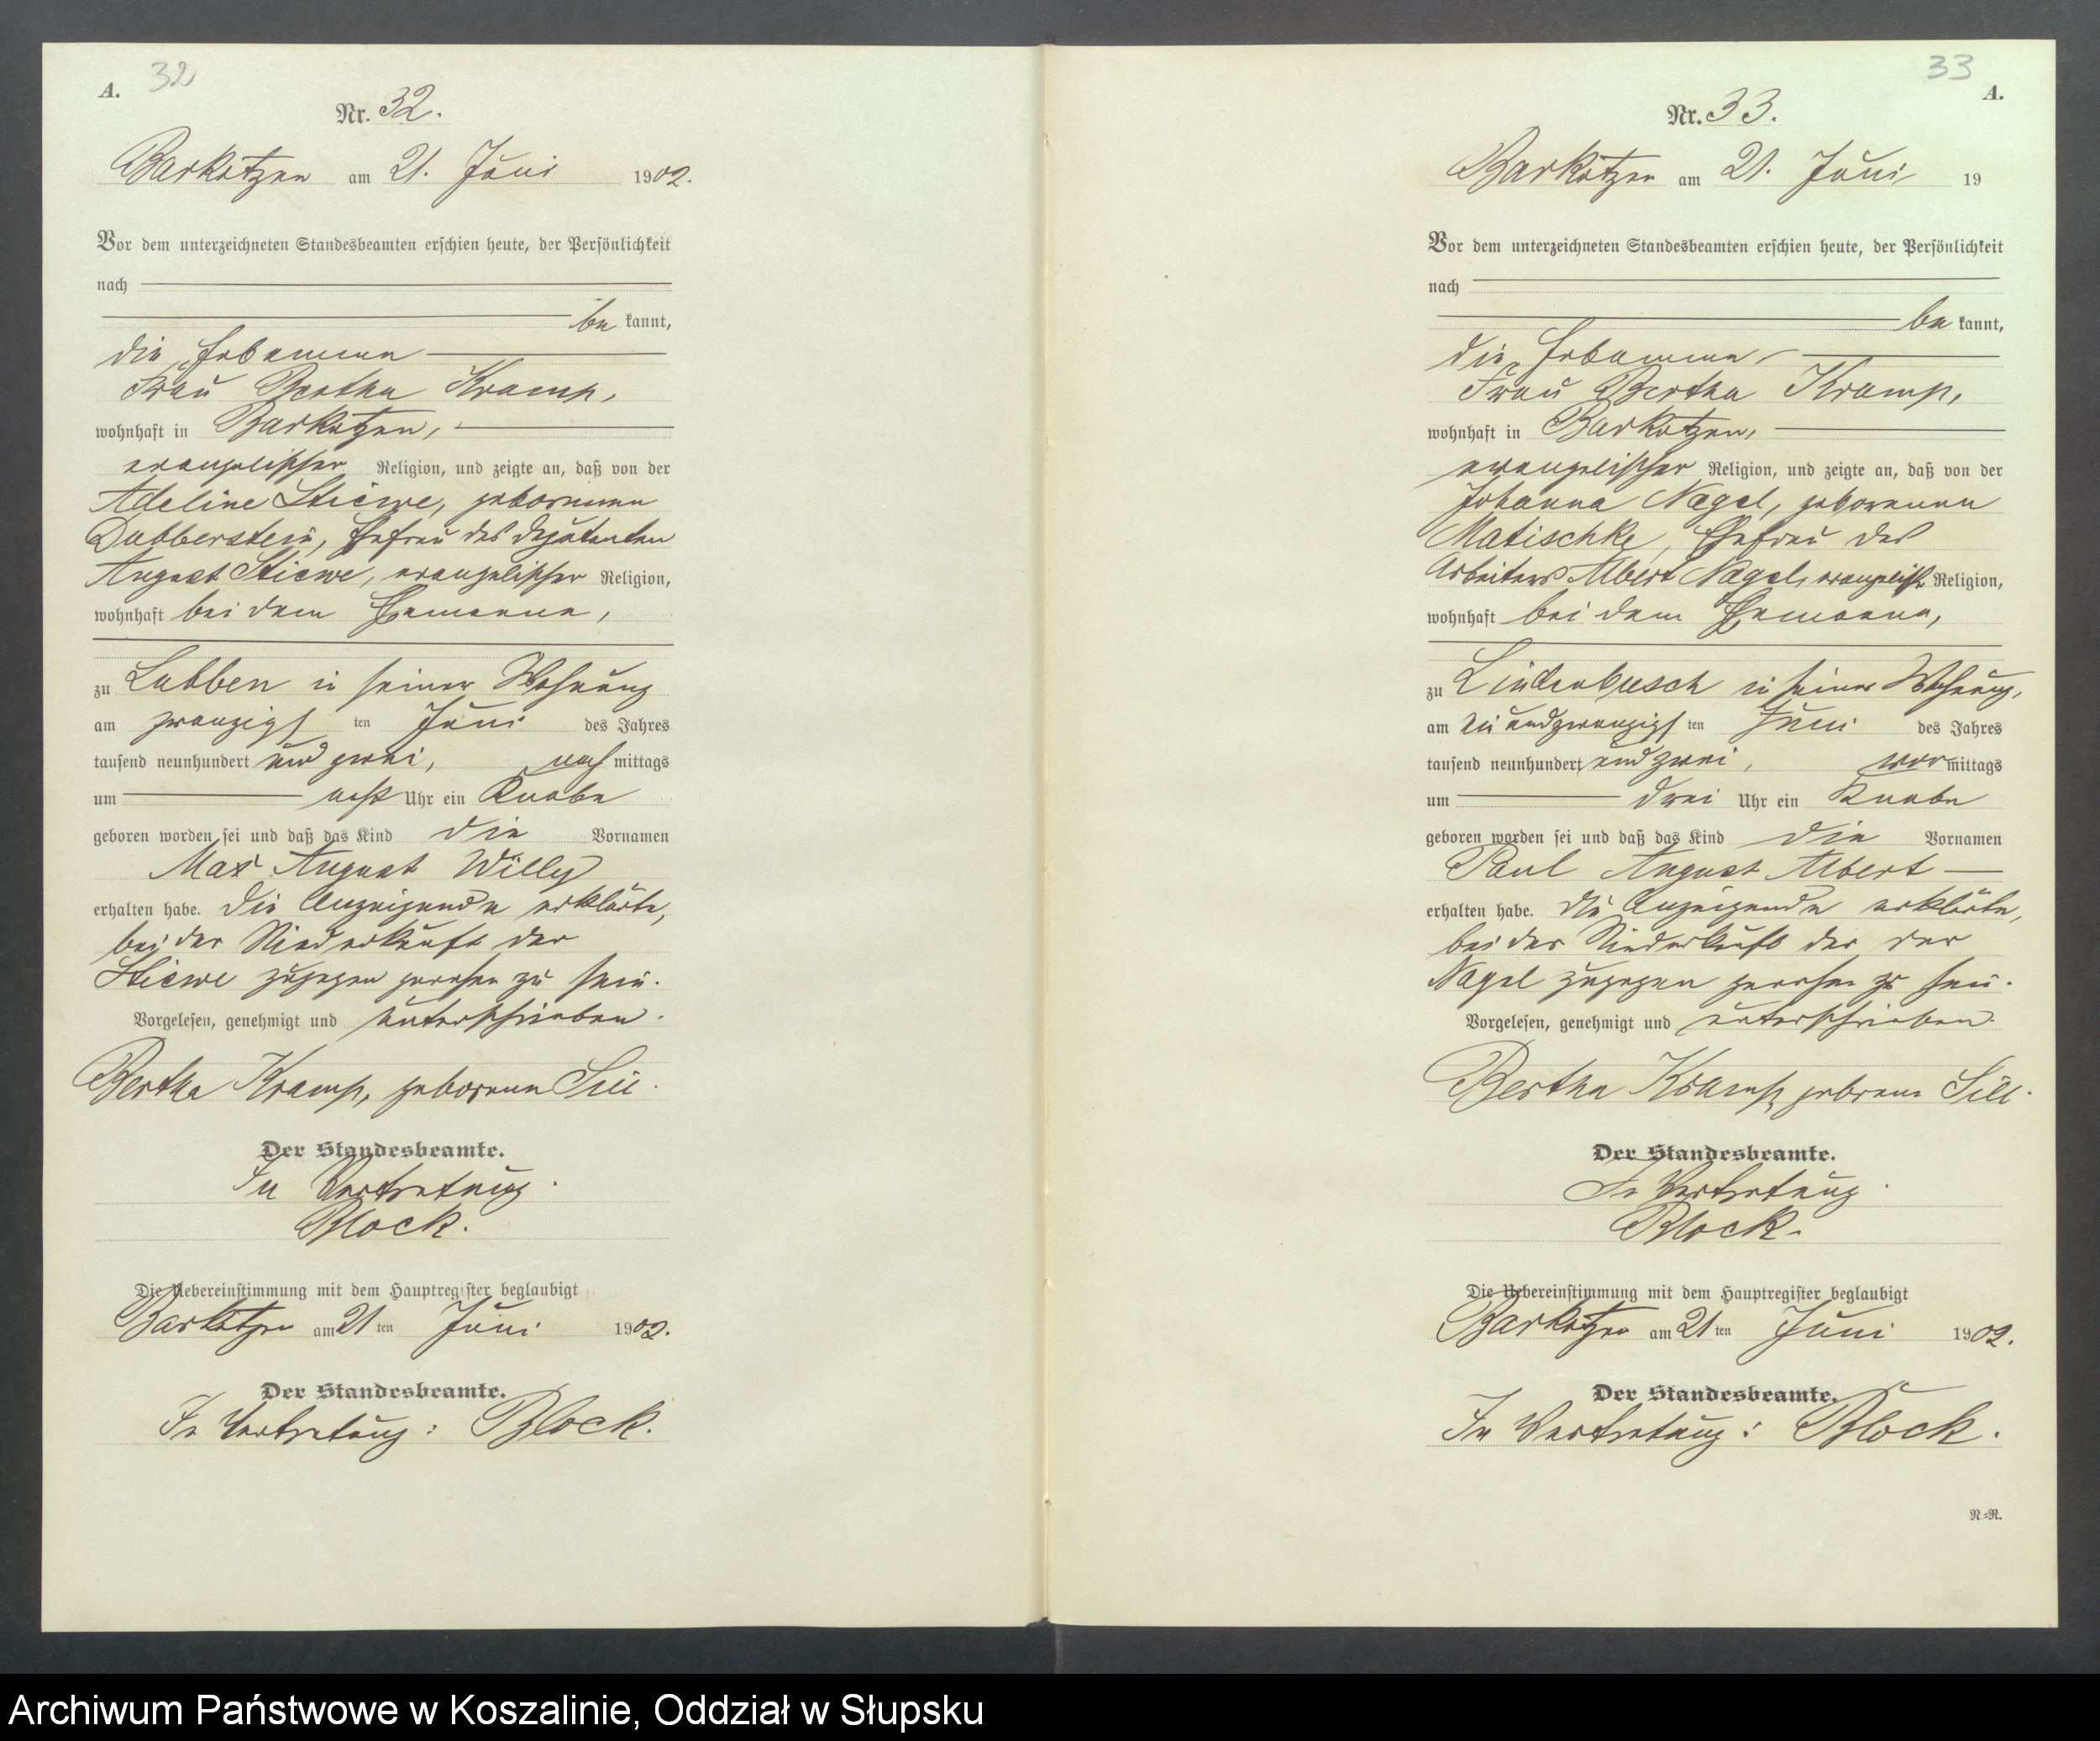 A. 32
Nr. 32.
Barkotzen am 21. Juni 1902.
Vor dem unterzeichneten Standesbeamten erschien heute, der Persönlichkeit
nach
be kannt,
die Hebamme
Frau Bertha Kramp,
wohnhaft in Barkotzen,
evangelischer Religion, und zeigte an, daß von der
Adeline Stiewe, geborenen
Dubberstein, Ehefrau des Deputanten
August Stiewe, evangelischer Religion,
wohnhaft bei dem Ehemanne,
zu Lubben in seiner Wohnung
am zwanzigsten Juni des Jahres
tausend neunhundert und zwei, nach mittags
um acht Uhr ein Knabe
geboren worden sei und daß das Kind die Vornamen
Max August Willy
erhalten habe. Die Anzeigende erklärte,
bei der Niederkunft der
Stiewe zugegen gewesen zu sein.
Vorgelesen, genehmigt und unterschrieben.
Bertha Kramp, geborene Sill.
Der Standesbeamte.
In Vertretung.
Block.
Die Uebereinstimmung mit dem Hauptregister beglaubigt
Barkotzen am 21 ten Juni 1902.
Der Standesbeamte.
In Vertretung: Block.
33
A.
Nr. 33.
Barkotzen am 21. Juni 19
Vor dem unterzeichneten Standesbeamten erschien heute, der Persönlichkeit
nach
be kannt,
die Hebamme
Frau Bertha Kramp,
wohnhaft in Barkotzen,
evangelischer Religion, und zeigte an, daß von der
Johanna Nagel, geborenen
Matischke, Ehefrau des
Arbeiters Albert Nagel, evangelisch. Religion,
wohnhaft bei dem Ehemanne,
zu Lindenbusch in seiner Wohnung,
am einundzwanzigsten Juni des Jahres
tausend neunhundert und zwei, vor mittags
um drei Uhr ein Knabe
geboren worden sei und daß das Kind die Vornamen
Paul August Albert
erhalten habe. Die Anzeigende erklärte,
bei der Niederkunft der der
Nagel zugegen gewesen zu sein.
Vorgelesen, genehmigt und unterschrieben.
Bertha Kramp, geborene Sill.
Der Standesbeamte.
In Vertretung.
Block.
Die Uebereinstimmung mit dem Hauptregister beglaubigt
Barkotzen am 21 ten Juni 1902.
Der Standesbeamte.
In Vertretung: Block.
N=R.
Archiwum Państwowe w Koszalinie, Oddział w Słupsku